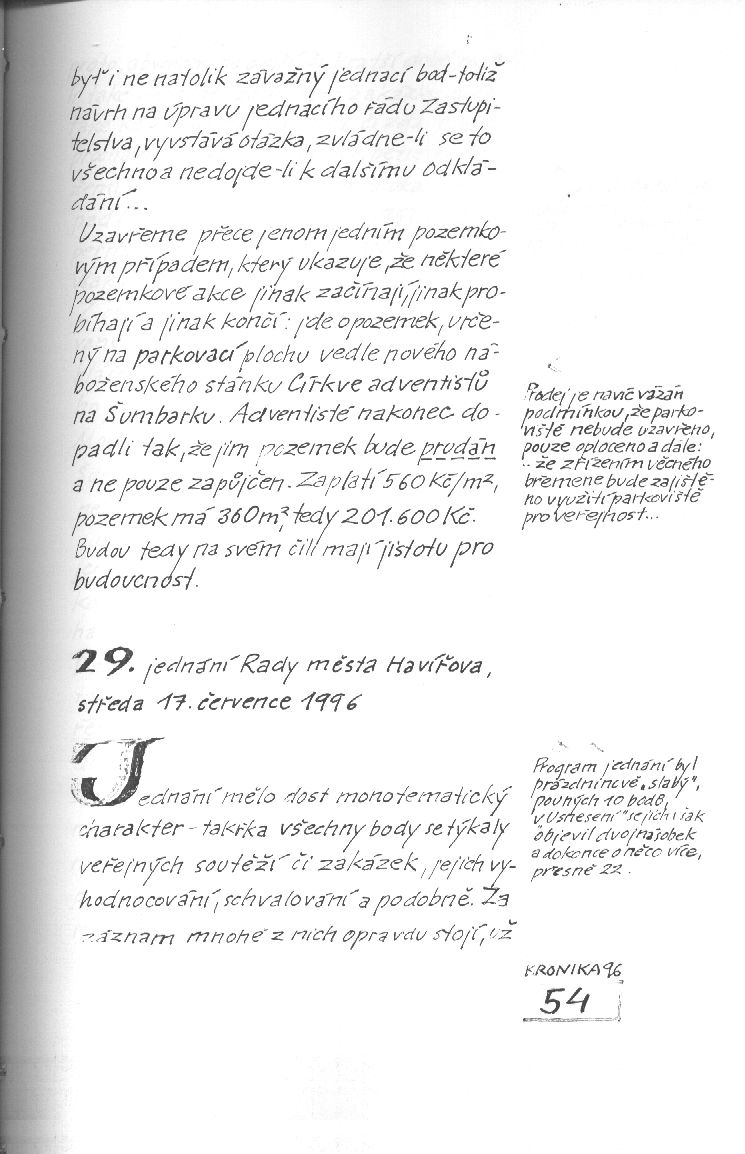 byť i ne natolik závažný jednací bod-totiž
návrh na úpravu jednacího řádu Zastupi-
telstva, vyvstává otázka, zvládne-li se to
všechno a nedojde-li k dalšímu odklá-
dání...
Uzavřeme přece jenom jedním pozemko-
vým případem, který ukazuje, že některé
pozemkové akce jinak začínají, jinak pro-
bíhají a jinak končí: jde o pozemek, urče-
ný na parkovací plochu vedle nového ná-
boženského stánku Církve adventistů
na Šumbarku. Adventisté nakonec do-
padli tak, že jim pozemek bude prodán
a ne pouze zapůjčen. Zaplatí 560 Kč/m²,
pozemek má 360m², tedy 201.600 Kč.
Budou tedy na svém čili mají jistotu pro
budoucnost.
Prodej je navíc vázán
podmínkou, že parko-
viště nebude uzavřeno,
pouze oploceno a dále:
.. že zřízením věcného
břemene bude zajiště-
no využití parkoviště
pro veřejnost...
29. jednání Rady města Havířova,
středa 17. července 1996
Jednání mělo dost monotematický
charakter - takřka všechny body se týkaly
veřejných soutěží či zakázek, jejich vy-
hodnocování, schvalování a podobně. Za
záznam mnohé z nich opravdu stojí, už
Program jednání byl
prázdninově „slabý",
pouhých 10 bodů,
v „Usnesení" se jich však
objevil dvojnásobek
a dokonce o něco více,
přesně 22.
KRONIKA 96
54